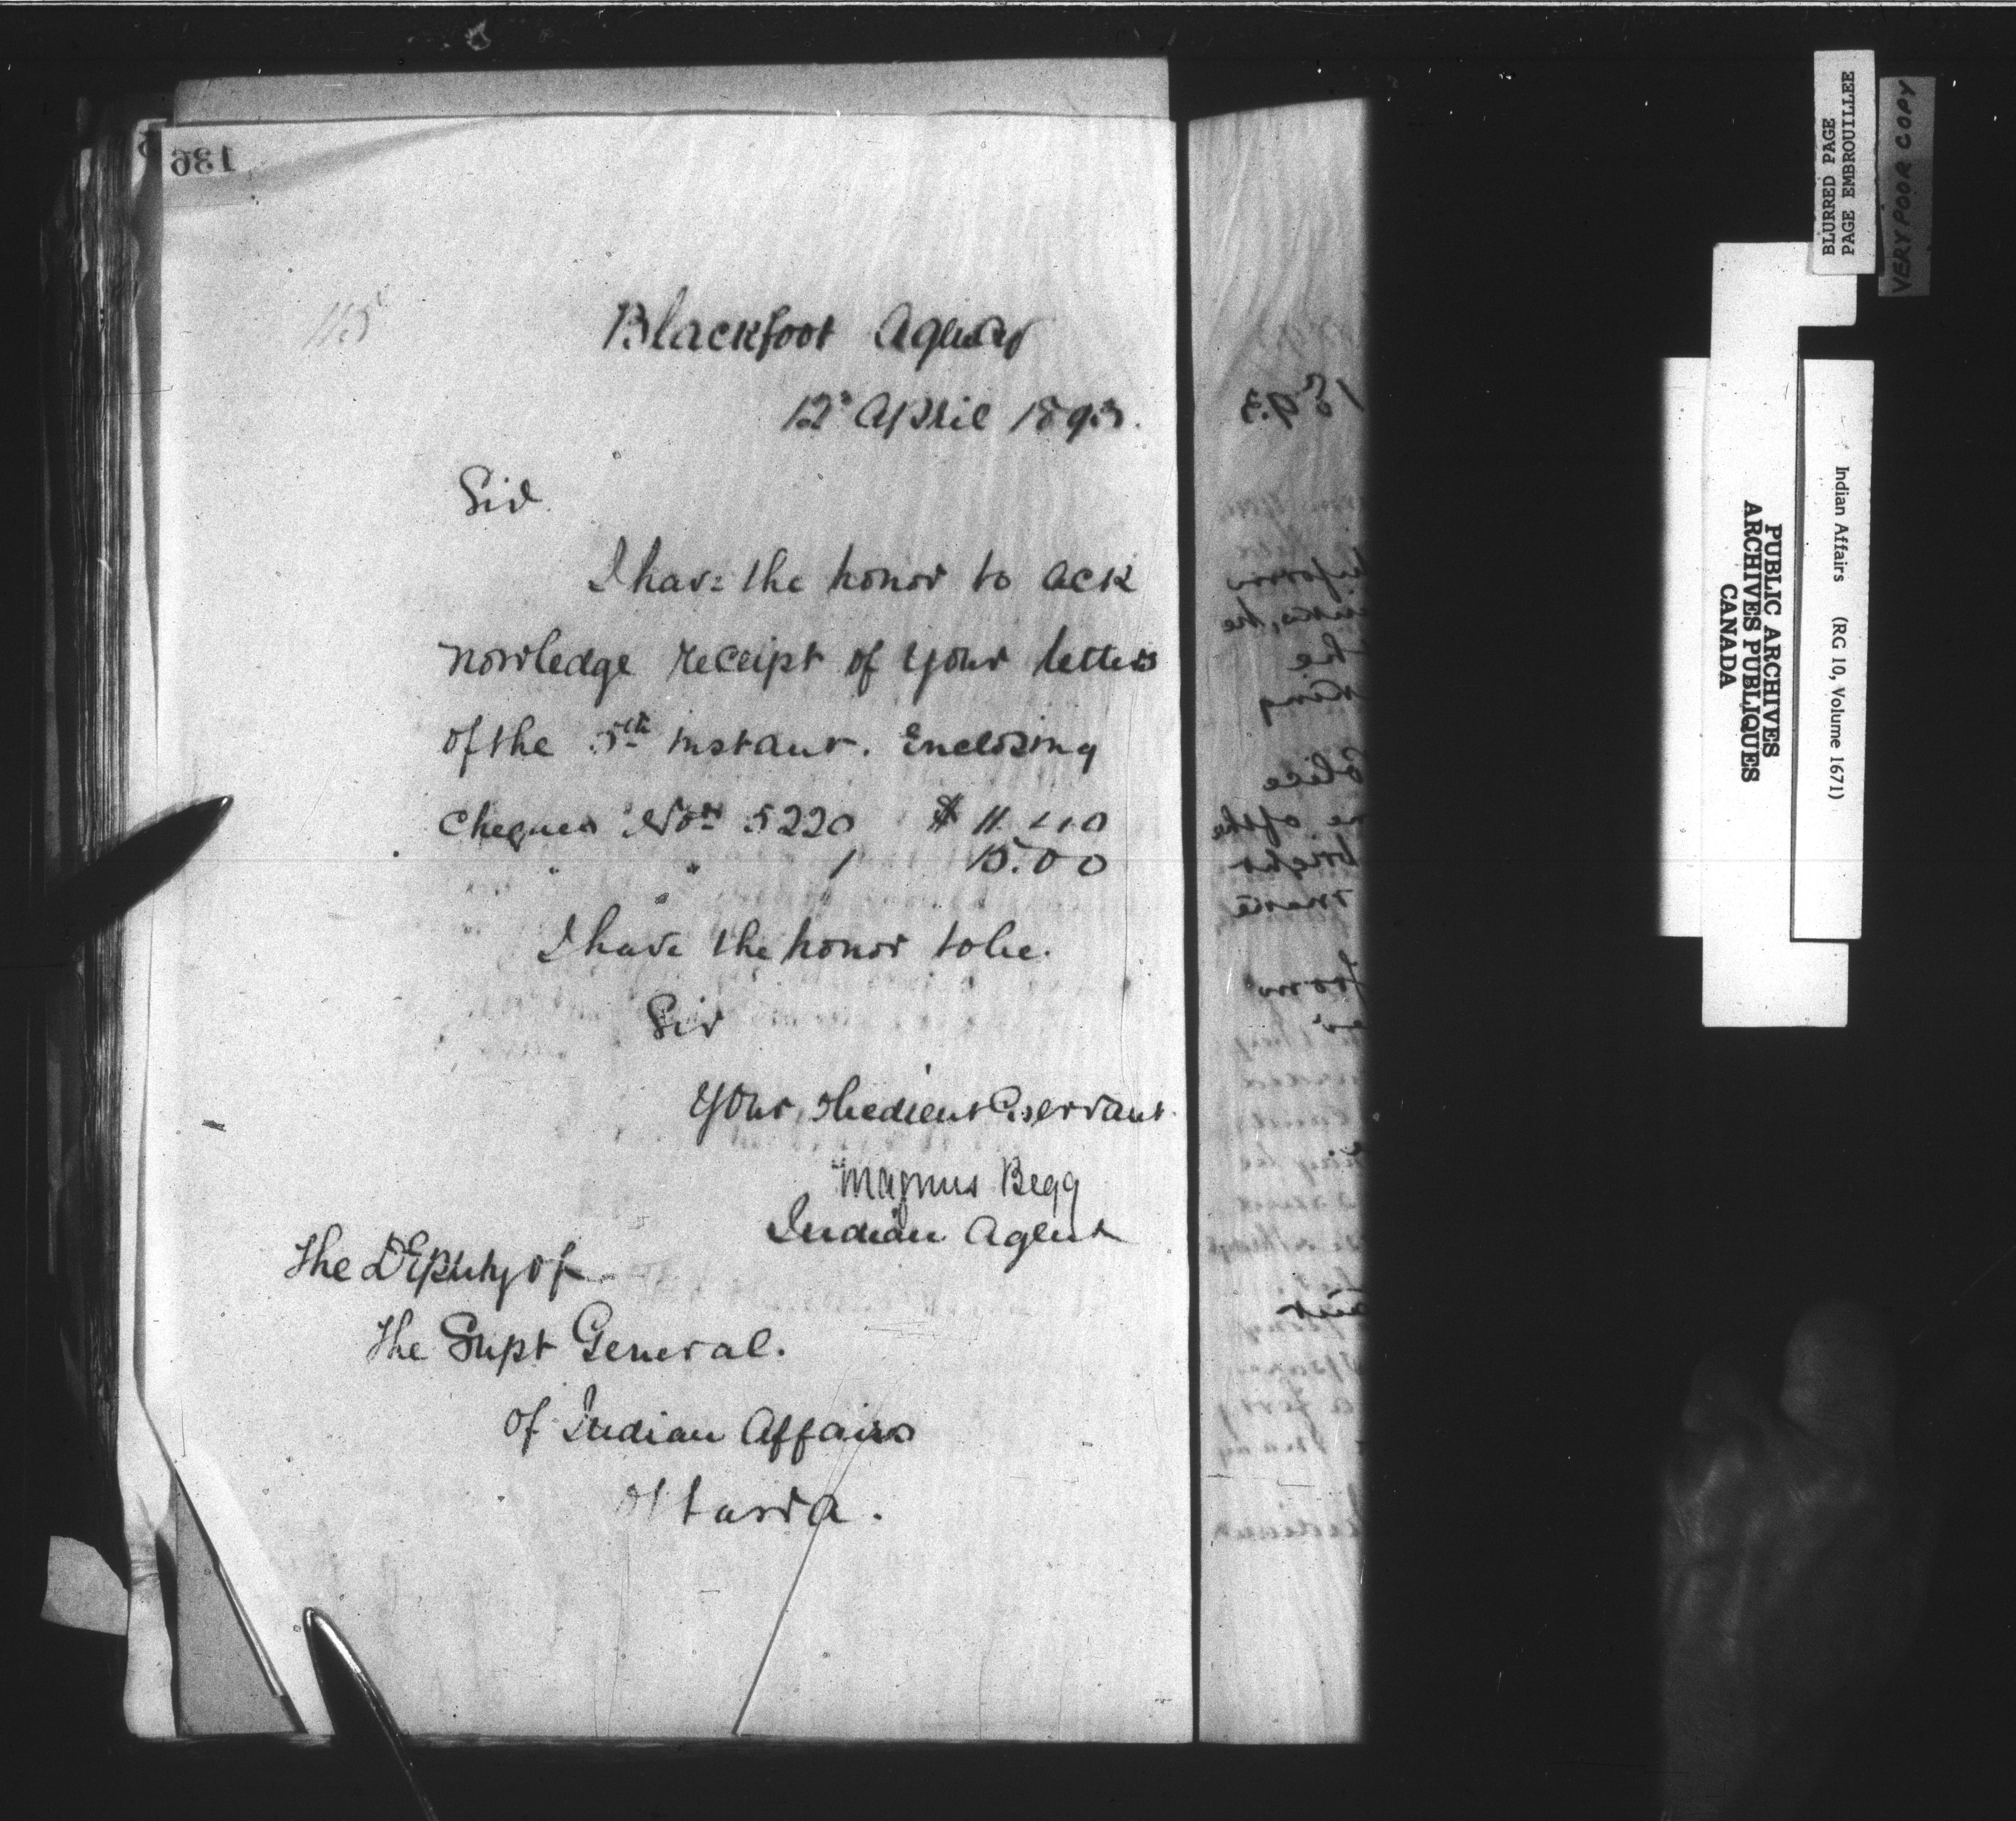 136
115
Blackfoot Agency
12th April 1893.
Sir
I have the honor to ack
nowledge receipt of your letters
of the 5th instant. Enclosing
Cheques Nos 5220 $ 11.40
" " 1 15.00
I have the honor to be.
Sir
Your obedient Servant
Magnus Begg
Indian Agent
The Deputy of
the Supt General.
of Indian Affairs
Ottawa.
1893
inform
the
King
Police
ne of the
BLURRED PAGE
PAGE EMBROUILLEE
VERY POOR COPY
Indian Affairs (RG 10, Volume 1671)
PUBLIC ARCHIVES
ARCHIVES PUBLIQUES
CANADA